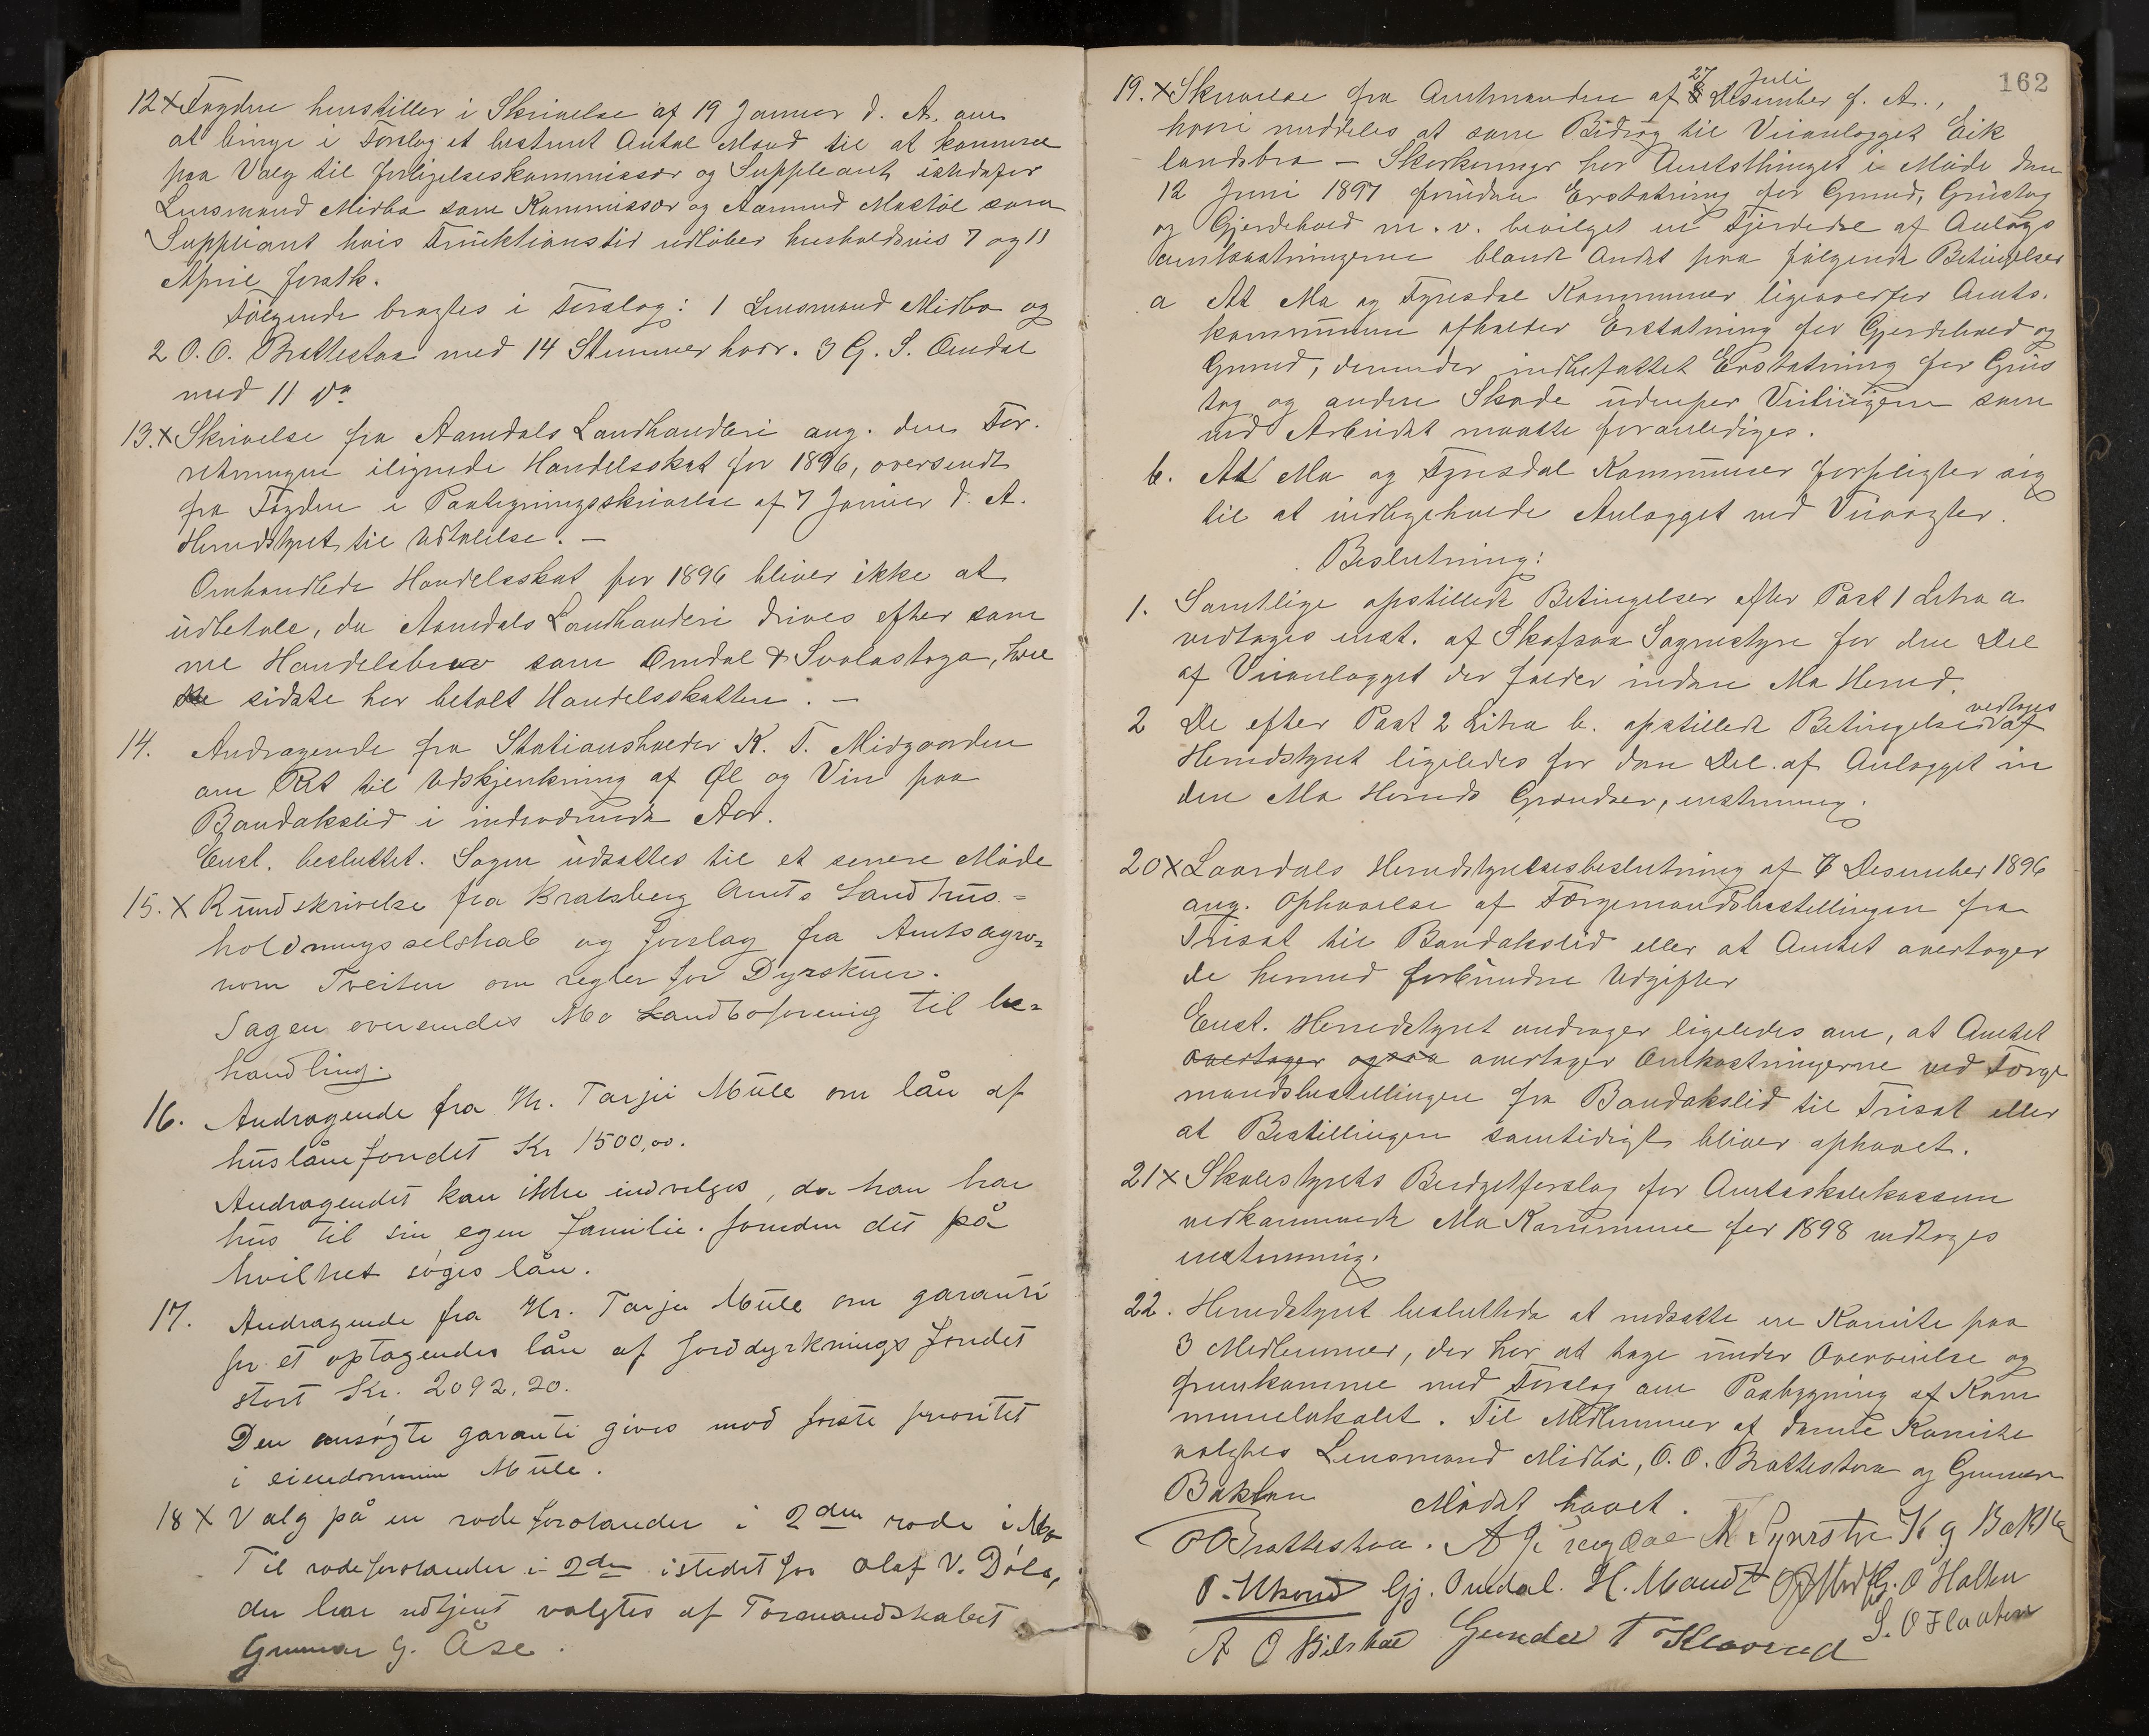 12 x Fogden henstiller i Skrivelse af 19 Januar d. A. om
at bringe i Forslag et bestemt Antal Mænd til at komme
paa Valg til Forligelseskommissær og Suppleant istedetfor
Lensmand Midbø som Kommissær og Aamund Mostøl som
Suppleant hvis Funktionstid udløber henholdsvis 7 og 11
April førstk.
Følgende bragtes i Forslag: 1 Lensmand Midbø og
2 O. O. Brattestaa med 14 Stemmer hver. 3 G. S. Omdal
med 11 do
13. x Skrivelse fra Aamdals Landhandleri ang. den For-
retningen ilignede Handelsskat for 1896, oversendt
fra Fogden i Paategningsskrivelse af 7 Januar d. A.
Herredstyret til Udtalelse. —
Omhandlede Handelsskat for 1896 bliver ikke at
udbetale, da Aamdals Landhanderi drives efter sam
me Handelsbrev som Omdal & Svalastoga, hvil
sidste har betalt Handelsskatten. —
14. Andragende fra Stationsholder K. T. Midgaarden
om Ret til Udskjenkning af Øl og Vin paa
Bandakslid i indeværende Aar.
Enst. besluttet. Sagen udsættes til et senere Møde
15. x Rundskrivelse fra Bratsberg Amts Landhus-
holdningsselskab og forslag fra Amtsagro-
nom Tveiten om regler for Dyrskuer.
Sagen oversendes Mo Landboforening til be-
handling.
16. Andragende fra Hr. Tarjei Mule om lån af
huslånefondet Kr 1500,00.
Andragendet kan ikke indvilges, da han har
hus til sin egen familie foruden det på
hvilket søges lån.
17. Andragende fra Hr. Tarjei Mule om garanti
for et optagendes lån af Jorddyrkningsfondet
stort Kr. 2092,20.
Den ansøgte garanti gives mod første prioritet
i eiendommen Mule.
18 x Valg på en rodeforstander i 2den rode i Mo
Til rodeforstander i 2de istedetfor Olaf V. Dåle,
der har udtjent valgtes af Formandskabet
Gunnar G. Åse.
162
27 Juli
19. x Skrivelse fra Amtmanden af 8 Desember f. A.,
hvori meddeles at som Bidrag til Veianlægget Eik
landsbro - Skorkeveigr har Amtsthinget i Møde den
12 Juni 1897 foruden Erstatning for Grund, Grustag
og Gjerdehold m. v. bevilget en Fjerdedel af Anlægs
omkostningerne blandt Andet paa følgende Betingelser
a At Mo og Fyresdal Kommuner ligeoverfor Amts-
kommunen afholder Erstatning for Gjerdehold og
Grund, derunder indbefattet Erstatning for Grus
tag og anden Skade udenfor Veilinjen som
ved Arbeidet maatte foranlediges.
b. At Mo og Fyresdal Kommuner forpligter sig
til at vedligeholde Anlægget med Veivogter.
Beslutning:
1. Samtlige opstillede Betingelser efter Post 1 Litra a
vedtages enst. af Skafsaa Sognestyre for den Del
af Veianlægget der falder inden Mo Herred.
vedtages
2 De efter Post 2 Litra b. opstillede Betingelser af
Herredstyret ligeledes for den Del af Anlægget in
den Mo Herreds Grændser, enstemmig.
20 x Laardals Herredstyrelsesbeslutning af 7 Desember 1896
ang. Ophævelse af Færgemandsbestillingen fra
Triset til Bandakslid eller at Amtet overtager
de hermed forbundne Udgifter
Enst. Herredstyret andrager ligeledes om, at Amtet
overtager ogsaa overtager Omkostningerne ved Færge
mandsbestillingen fra Bandakslid til Triset eller
at Bestillingen samtidigt bliver ophævet.
21 x Skolestyrets Budgetforslag for Amtsskolekassen
vedkommende Mo Kommune for 1898 vedtoges
enstemmig.
22. Herredstyret besluttede at nedsætte en Komite paa
3 Medlemmer, der har at tage under Overveielse og
fremkomme med Forslag om Paabygning af Kom
munelokalet. Til Medlemmer af denne Komite
valgtes Lensmand Midbø, O. O. Brattestaa og Gunnar
Bakken Mødet hævet.
OO Brattestaa. K. g Bakke
Gj. Omdal. H. Mandt O Holten
A O Gunder T Klovrud S. O Flaaten